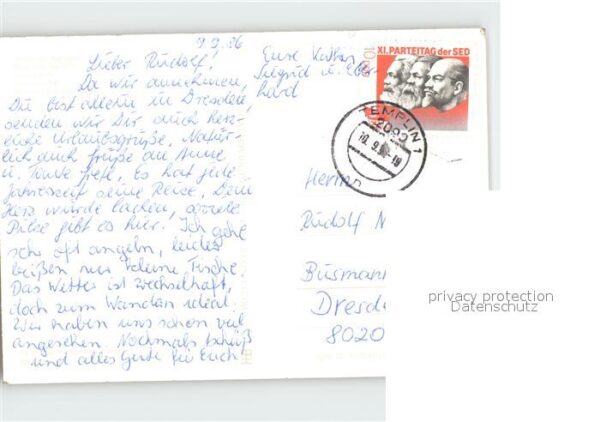 9.9.86
Lieber Rudolf,
Da wir annehmen,
Du bist allein in Dresden,
senden wir Dir auch herz-
liche Urlaubsgrüße. Natür-
lich auch Grüße an Anne
u. Tante Grete. Es hat jede
Jahreszeit seine Reize. Dein
Herz würde lachen, soviele
Pilze gibt es hier. Ich gehe
sehr oft angeln, leider
beißen nur kleine Fische.
Das Wetter ist wechselhaft,
doch zum Wandern ideal.
Wir haben uns schon viel
angesehen. Nochmals tschüß
und alles Gute für Euch
Eure
Siegrid u. Eber-
hard
10
XI. PARTEITAG der SED
TEMPLIN 1
2090
10.9.86-19
Herrn
Rudolf N
Büsmann
Dresde
8020
privacy protection
Datenschutz